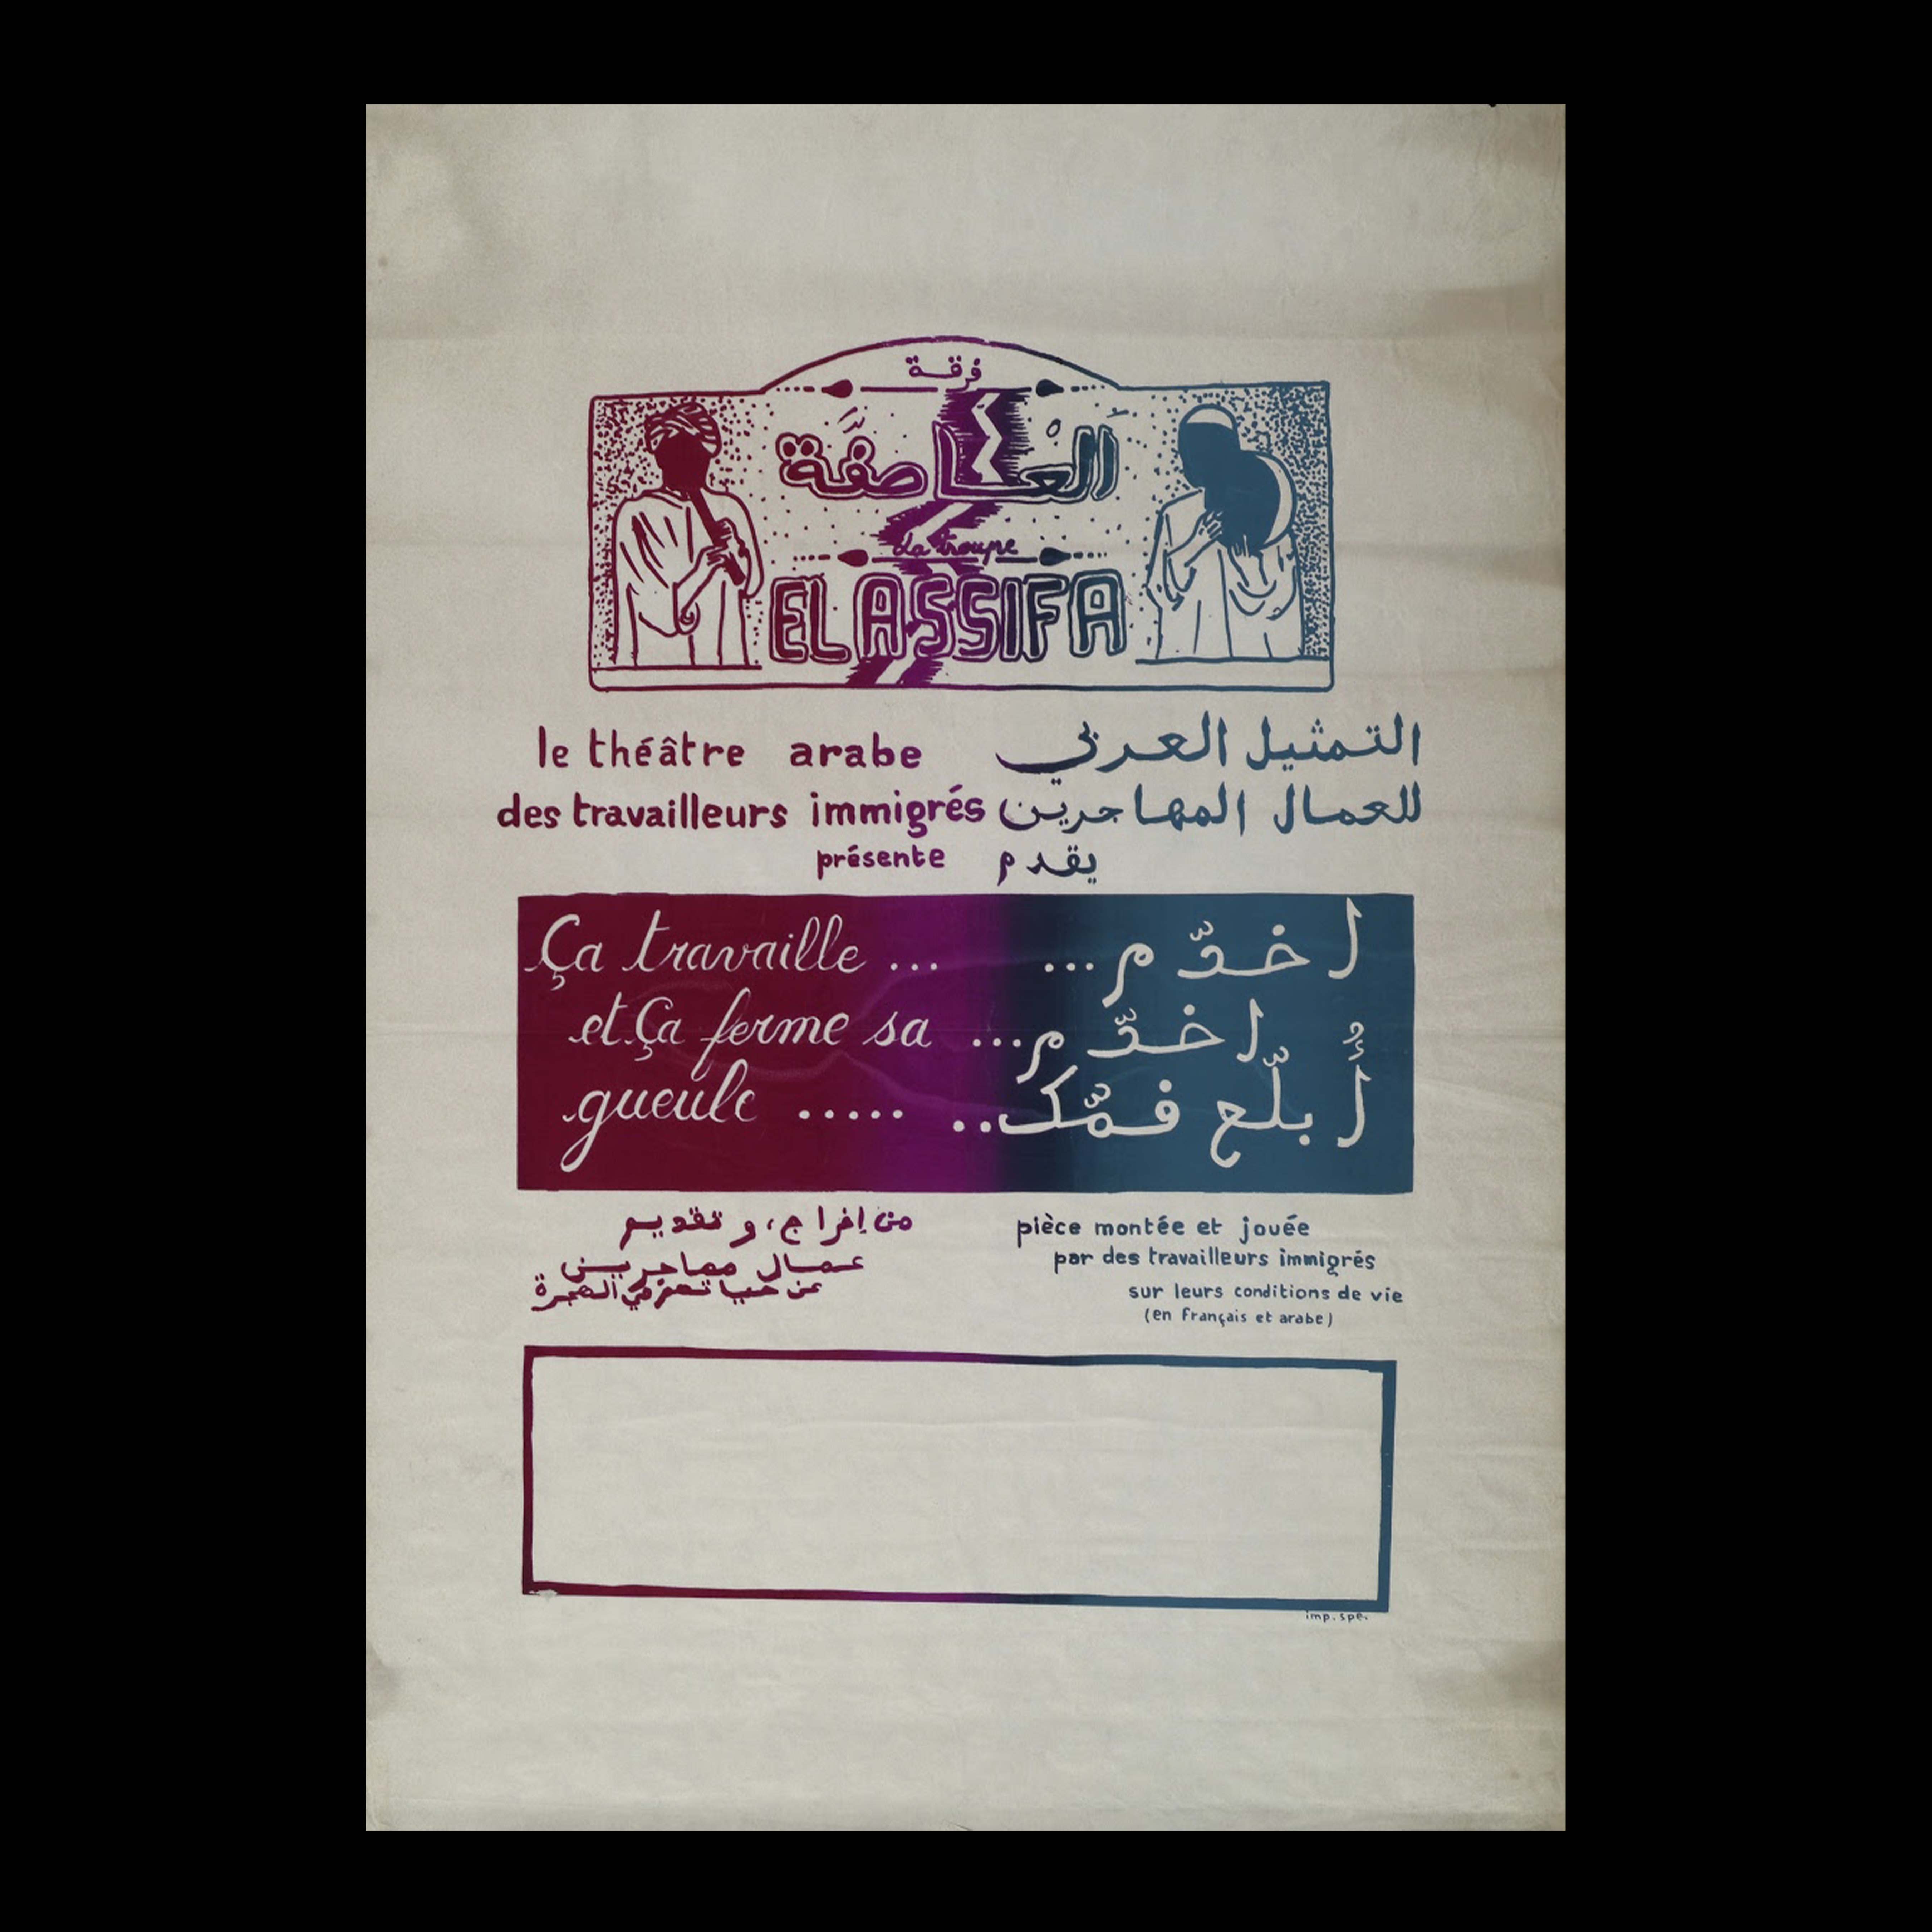 فرقة
العاصفة
La troupe
EL ASSIFA
le théâtre arabe
des travailleurs immigrés
présente
التمثيل العربي
للعمال المهاجرين
يقدم
Ça travaille ...
et Ça ferme sa
gueule .....
اخدّم...
اخدّم...
أُبلّع فمّك..
من إخراج، و تقديم
عمال مهاجرين
عن حياتهم في الهجرة
pièce montée et jouée
par des travailleurs immigrés
sur leurs conditions de vie
(en français et arabe)
imp. spe.